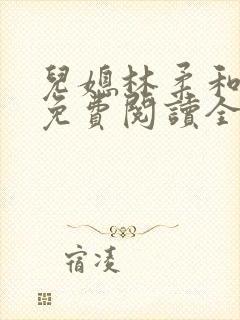 兒媳林柔和
免費閱讀全
宿凌